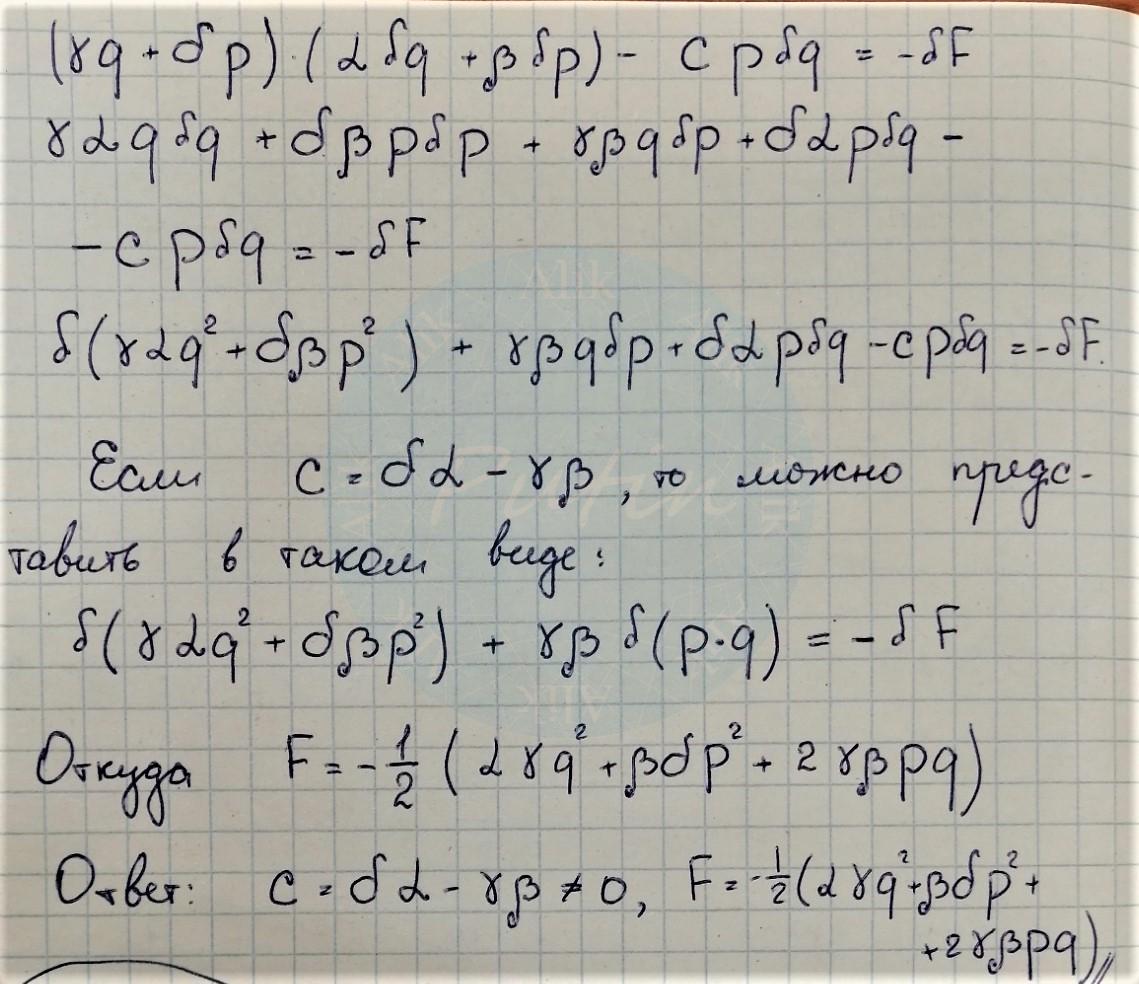 (γq + δp)·(αδq + βδp) - c p δq = -δF
γαqδq + δβpδp + γβqδp + δαpδq -
- c p δq = - δF
δ(γαq² + δβp²) + γβqδp + δαpδq - cpδq = -δF.
Если c = δα - γβ, то можно предс-
тавить в таком виде:
δ(γαq² + δβp²) + γβ δ(p·q) = - δF
Откуда F = -1/2 (αγq² + βδp² + 2γβpq)
Ответ: c = δα - γβ ≠ 0, F = -1/2(αγq² + βδp² +
+ 2γβpq)
Alik
Alik
Alik
Putin